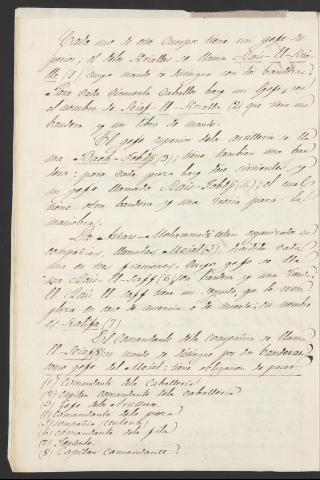 Cada uno de esos cuerpos tiene un gefe superior; el de la Kiralla se llama Rais-U-Kiralla (1) cuyo mando se distingue con dos banderas.
Para cada cien caballos hay un Gefe, con
el nombre de Sciaf-U-Kiralla (2) que tiene una
bandera y un libro de mando.
El gefe superior de la artilleria se llama
(3); tiene tambien una bandera:
para cada pieza hay dos sirvientes y
un gefe llamado Rais (4); el cual
tiene otra bandera y una teoria para las
maniobras.
Los Askars-Mohammedi estan organizados en
compañias, llamadas (5), dividida cada
una en tres fracciones, cuyo gefe se llama
Rais-U-Saff (6) con bandera y una
El Rais U Saff tiene un segundo, que le reemplaza
en caso de ausencia o de muerte; su nombre
es Kalifa (7)
El comandante de la compañia se llama
U-Sciaf (8) su mando se distingue por dos banderas
como gefe del; tiene obligacion de pasar
(1) Comandante de la Caballeria
(2) Capitan comandante de caballeria
(3) Gefe de la Artilleria
(4) comandante de la pieza
(5) compañia (centuria)
(6) comandante de la fila
(7) Teniente
(8) Capitan comandante